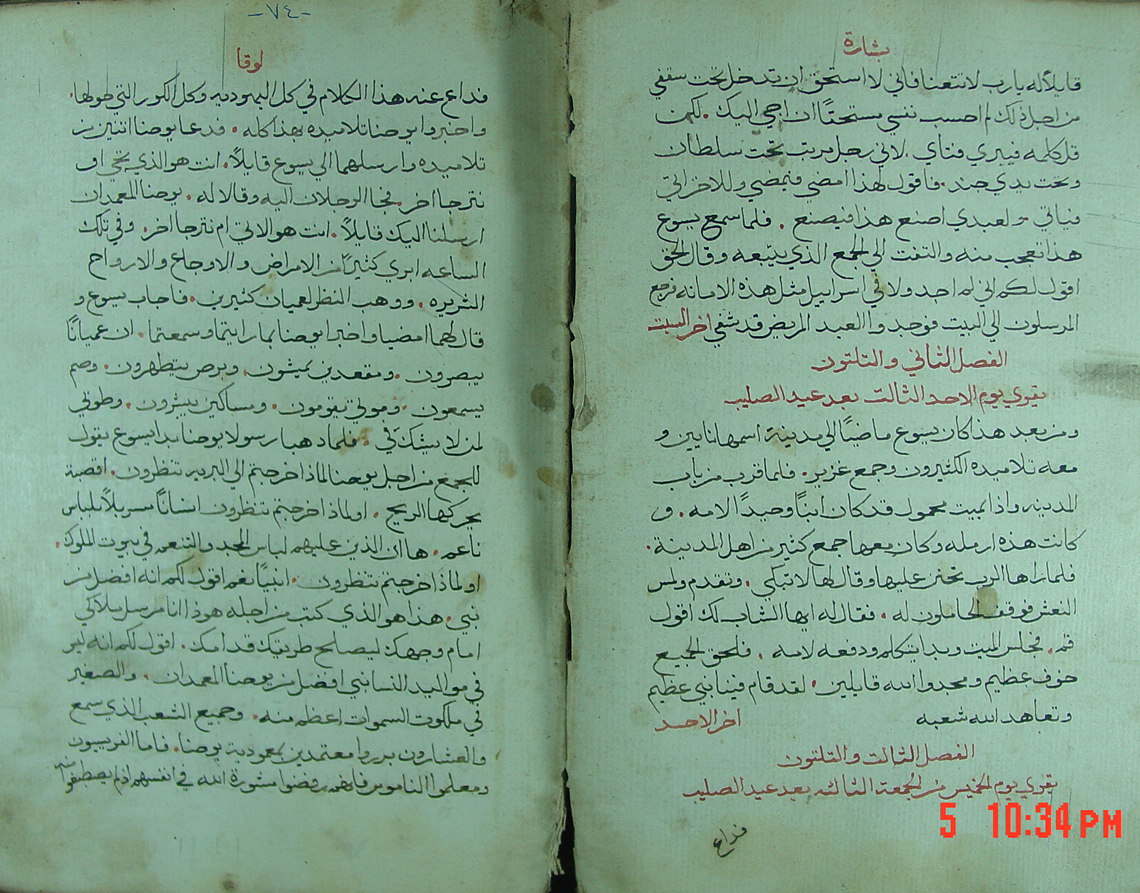 بشارة
قايلاً له يا رب لا تتعنا فاني لا استحق ان تدخل تحت سقفي
من اجل ذلك لم احسب نفسي مستحقاً ان اجي اليك . لكن
قل كلمه فيبري فتاي . لاني رجل مرتب تحت سلطان
وتحت يدي جند . فاقول لهذا امضي فيمضي وللاخر اتي
فياتي ولعبدي اصنع هذا فيصنع . فلما سمع يسوع
هذا تعجب منه والتفت الي الجمع الذي يتبعه وقال الحق
اقول لكم اني لم اجد ولا في اسراييل مثل هذه الامانه فرجع
المرسلون الي البيت فوجدوا العبد المريض قد شفي اخر السبت
الفصل الثاني والتلتون
يقري يوم الاحد الثالث بعد عيد الصليب
ومن بعد هذا كان يسوع ماضياً الي مدينة اسمها نايين و
معه تلاميذه الكثيرون وجمع غزير . فلما قرب من باب
المدينه واذا بميت محمول قد كان ابناً وحيداً لامه . و
كانت هذه ارمله وكان معها جمع كثير من اهل المدينة .
فلما راها الرب تحنن عليها وقال لها لا تبكي . وتقدم ولمس
النعش فوقف الحاملون له . فقال له ايها الشاب لك اقول
قم . فجلس الميت وبدا يتكلم ودفعه لامه . فلحق الجميع
خوف عظيم ومجدوا الله قايلين . لقد قام فينا نبي عظيم
وتعاهد الله شعبه اخر الاحد
الفصل الثالث والتلتون
يقري يوم الخميس من الجمعة الثالثه بعد عيد الصليب
فداع
5 10:34 PM
-٧٤-
لوقا
فداع عنه هذا الكلام في كل اليهوديه وكل الكور التي حولها .
واخبروا يوحنا تلاميذه بهذا كله . فدعا يوحنا اتنين من
تلاميذه وارسلهما الي يسوع قايلاً . انت هو الذي تجي او
نترجا اخر . فجا الرجلان اليه وقالا له . يوحنا المعمدان
ارسلنا اليك قايلاً . انت هو الاتي ام نترجا اخر . وفي تلك
الساعه ابري كثيرين من الامراض والاوجاع والارواح
الشريره . ووهب النظر لعميان كثيرين . فاجاب يسوع و
قال لهما امضيا واخبرا يوحنا بما رايتما وسمعتما . ان عمياناً
يبصرون . ومقعدين يمشون . وبرص يتطهرون . وصم
يسمعون . وموتي يقومون . ومساكين يبشرون . وطوبي
لمن لا يشك في . فلما ذهبا رسولا يوحنا بدا يسوع يقول
للجمع من اجل يوحنا لماذا خرجتم الي البريه تنظرون . اقصبة
يحركها الريح . او لماذا خرجتم تنظرون انساناً مسربلاً بلباس
ناعم . ها ان الذين عليهم لباس المجد والتنعم في بيوت الملوك .
او لماذا خرجتم تنظرون . انبياً نعم اقول لكم انه افضل من
نبي . هذا هو الذي كتب من اجله هوذا انا مرسل ملاكي
امام وجهك ليصلح طريقك قدامك . اقول لكم انه ليس
في مواليد النسا نبي افضل من يوحنا المعمدان . والصغير
في ملكوت السموات اعظم منه . وجميع الشعب الذي سمع
والعشارون برروا معتمدين بمعودية يوحنا . فاما الفريسيون
ومعلموا الناموس فانهم رفضوا مشورة الله في انفسهم اذ لم يصطبغوا